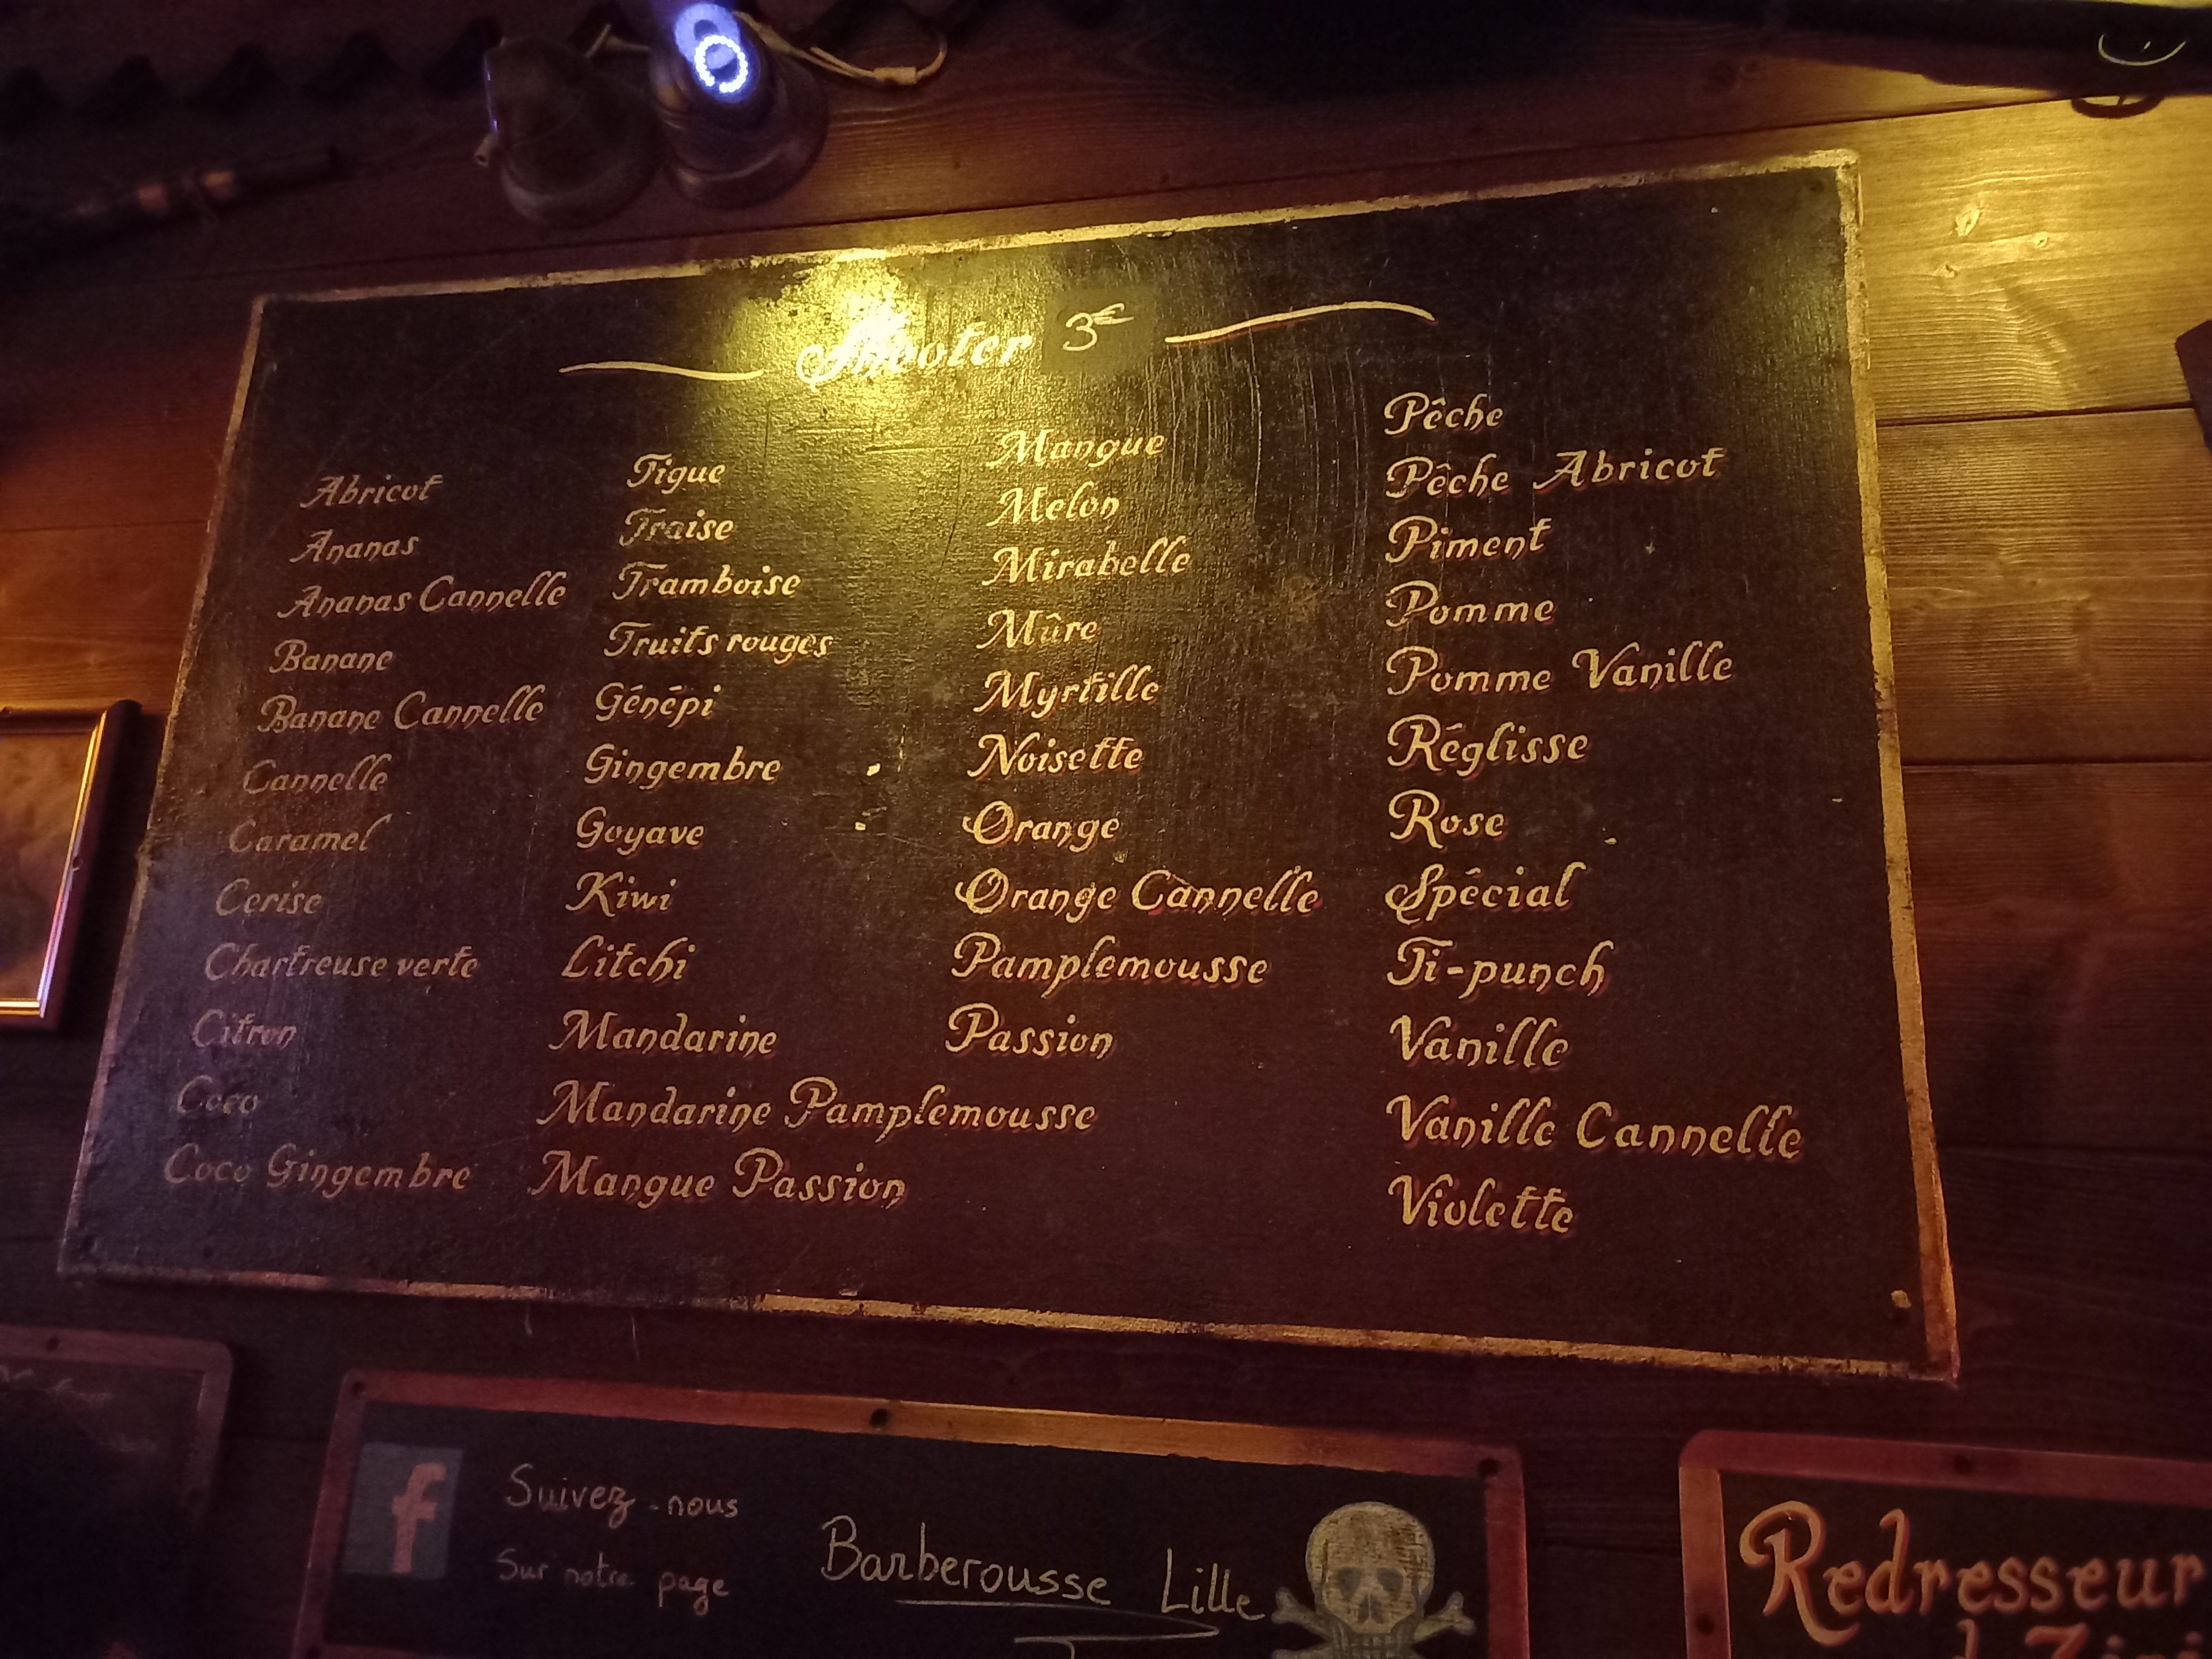 Shooter 3€
Abricot
Ananas
Ananas Cannelle
Banane
Banane Cannelle
Cannelle
Caramel
Cerise
Chartreuse verte
Citron
Coco
Coco Gingembre
Figue
Fraise
Framboise
Fruits rouges
Génépi
Gingembre
Goyave
Kiwi
Litchi
Mandarine
Mandarine Pamplemousse
Mangue Passion
Mangue
Melon
Mirabelle
Mûre
Myrtille
Noisette
Orange
Orange Cannelle
Pamplemousse
Passion
Pêche
Pêche Abricot
Piment
Pomme
Pomme Vanille
Réglisse
Rose
Spécial
Ti-punch
Vanille
Vanille Cannelle
Violette
f
Suivez-nous
Sur notre page
Barberousse Lille
Redresseur